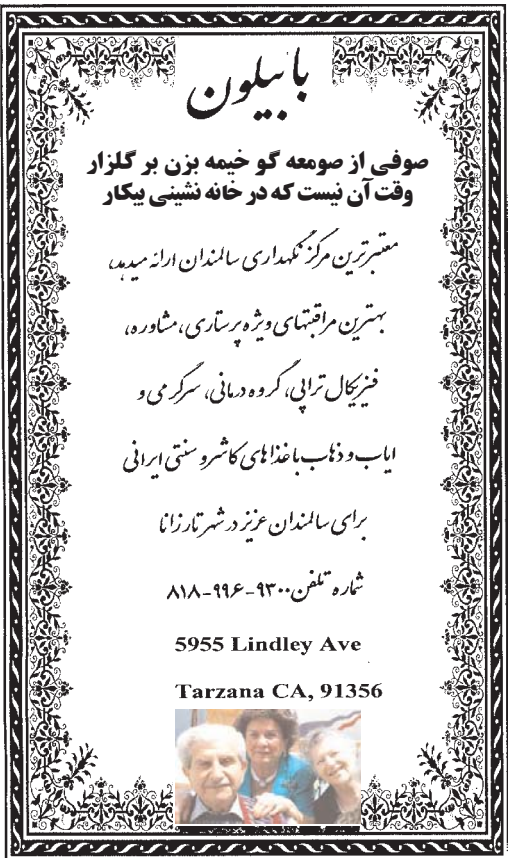 بابیلون
صوفی از صومعه گو خیمه بزن بر گلزار
وقت آن نیست که در خانه نشینی بیکار
معتبرترین مرکز نگهداری سالمندان ارائه میدهد،
بهترین مراقبتهای ویژه پرستاری، مشاوره،
فیزیکال تراپی، گروه درمانی، سرگرمی و
ایاب و ذهاب با غذاهای کاشر و سنتی ایرانی
برای سالمندان عزیز در شهر تارزانا
شماره تلفن ۸۱۸-۹۹۶-۹۳۰۰
5955 Lindley Ave
Tarzana CA, 91356